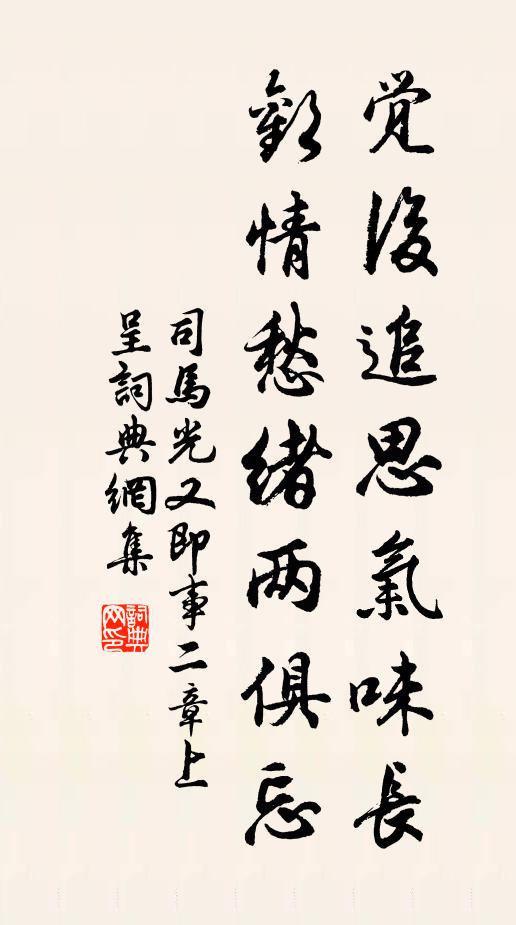 覚後追思氣味長
歡情愁緒两俱忘
司馬光又即事二章上
呈詞典網集
詞典
网印